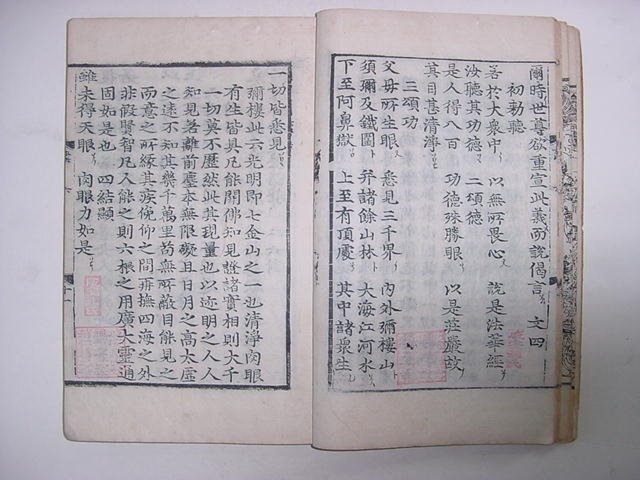 爾時世尊欲重宣此義而說偈言 文四
初勅聽
若於大衆中 以無所畏心 說是法華經
汝聽其功德 二頌德
是人得八百 功德殊勝眼 以是莊嚴故
其目甚清淨
三頌功
父母所生眼 悉見三千界 內外彌樓山
須彌及鐵圍 幷諸餘山林 大海江河水
下至阿鼻獄 上至有頂處 其中諸衆生
一切皆悉見
彌樓此云光明即七金山之一也清淨肉眼
有生皆具凡能開佛知見證諸實相則大千
一切莫不歷然此其現量也以迹明之人人
知見若離前塵本無限礙且日月之高大虛
之遠不知其幾千萬里苟無所蔽目能見之
而意之所緣其疾俛仰之間再撫四海之外
非假賢智凡人能之則六根之用廣大靈通
固如是也 四結顯
雖未得天眼 肉眼力如是